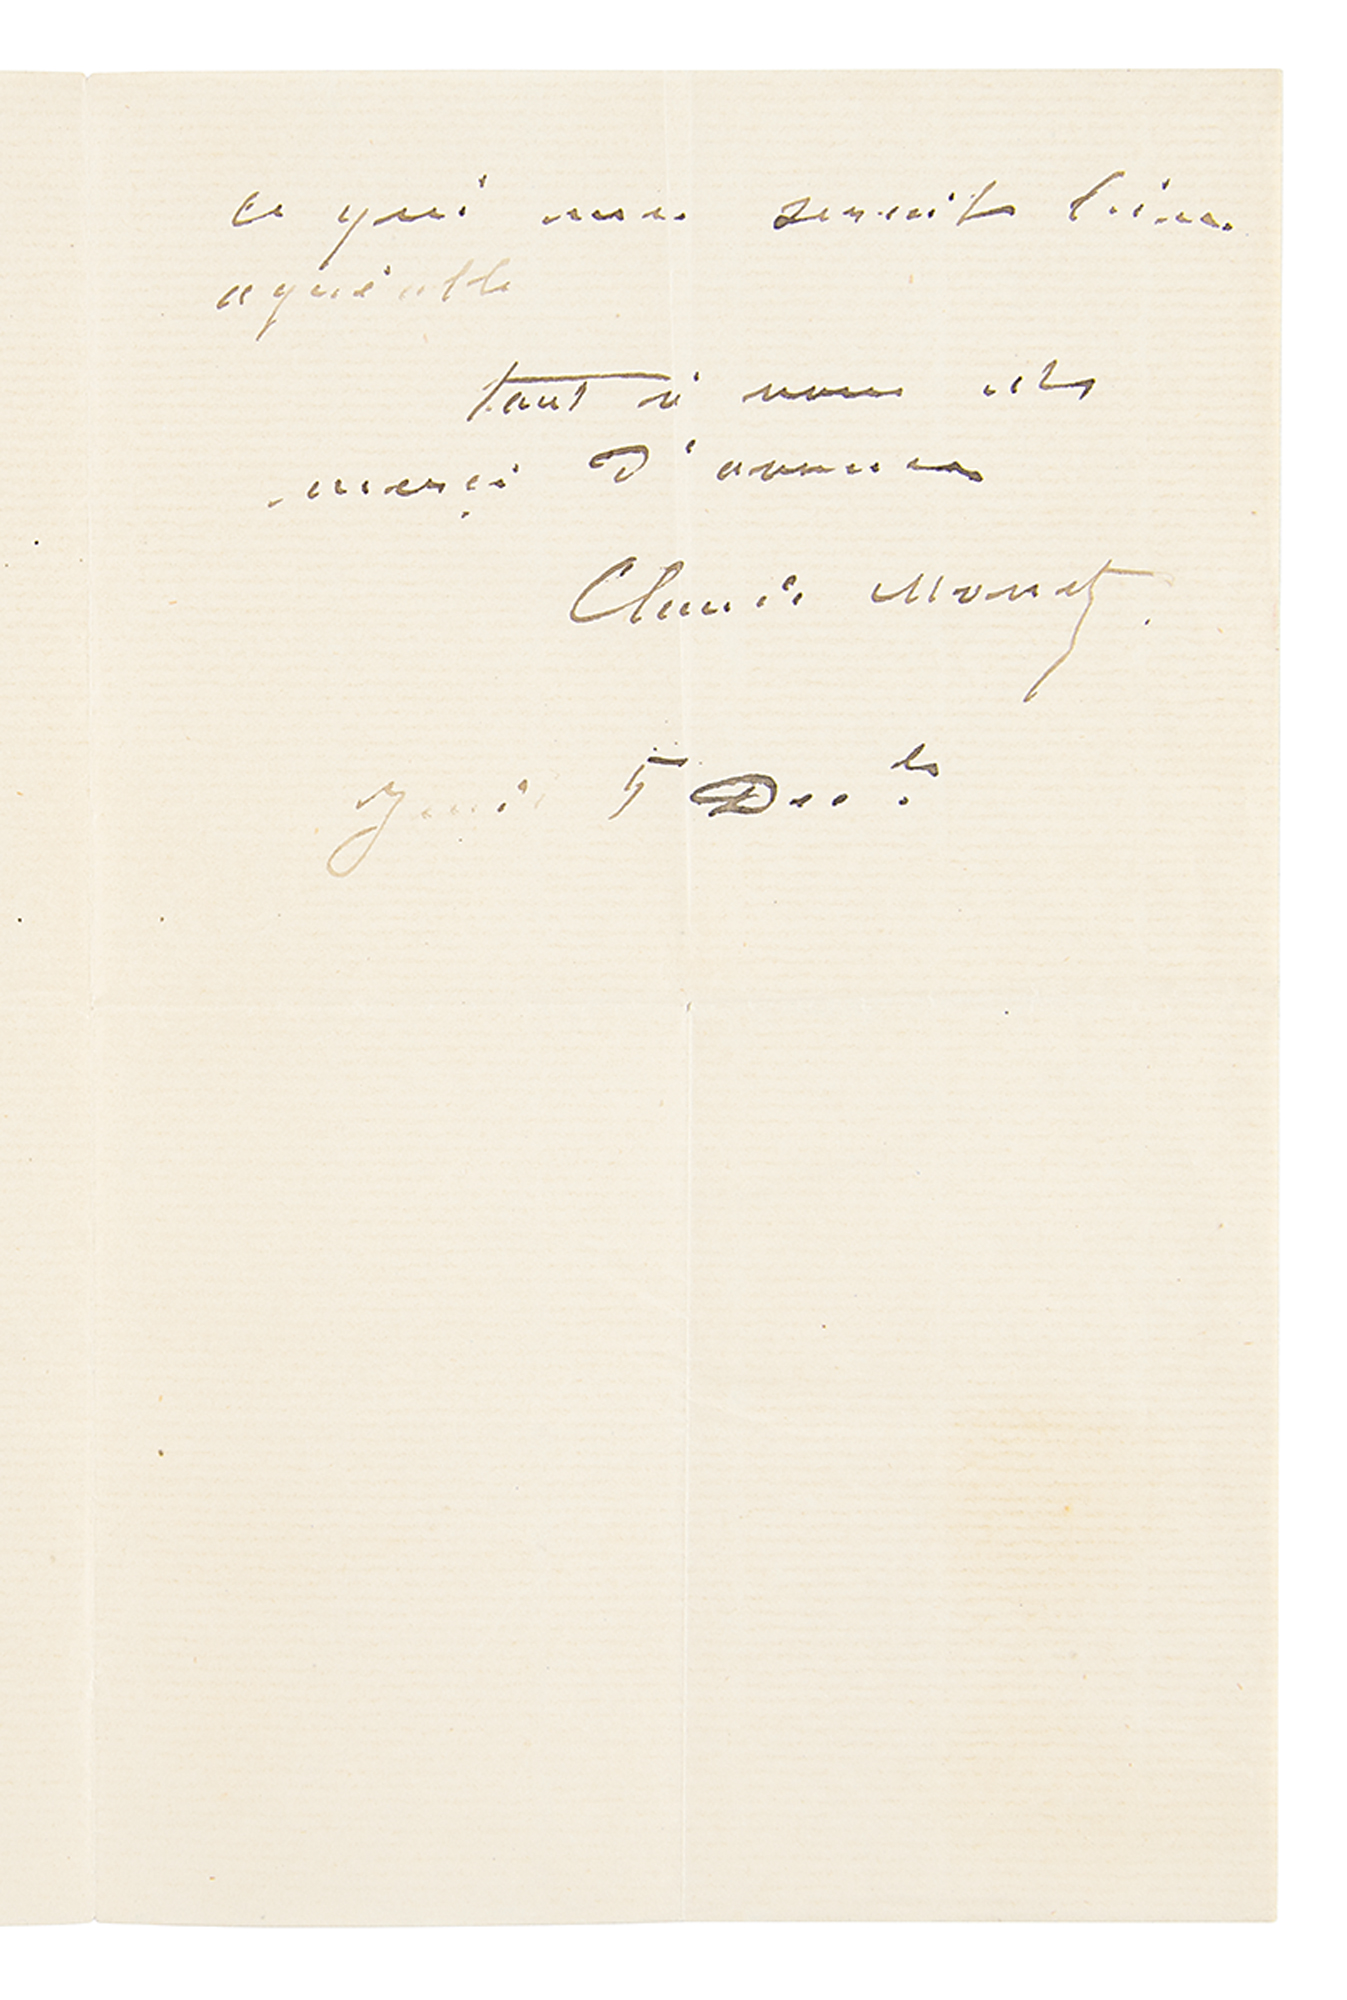 ce qui me serait bien
agréable
tout à vous et
merci d'avance
Claude Monet
Jeudi 5 Dec.bre